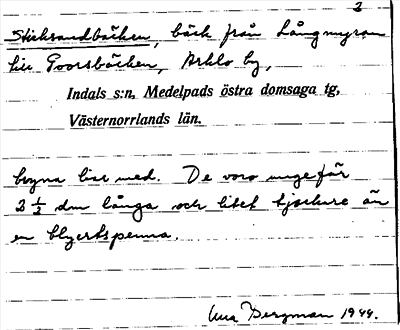 2
Sticksandbäcken, bäck från Långmyran
till Poorsbäcken, Arklo by,
Indals s:n, Medelpads östra domsaga tg,
Västernorrlands län.
bryna lian med. De voro ungefär
2 ½ dm långa och litet tjockare än
en blyertspenna.
Bergman 1944.